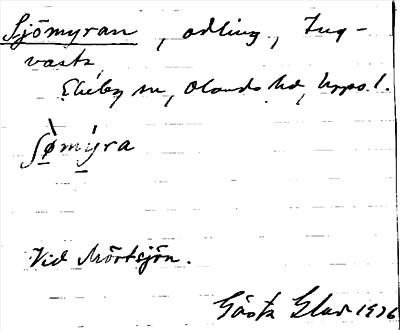 Sjömyran, odling, Tug-
vasta
Ekeby sn, Olands hd, Upps. l.
ʃø̀mýra
Vid Mörtsjön.
Gösta Glad 1976